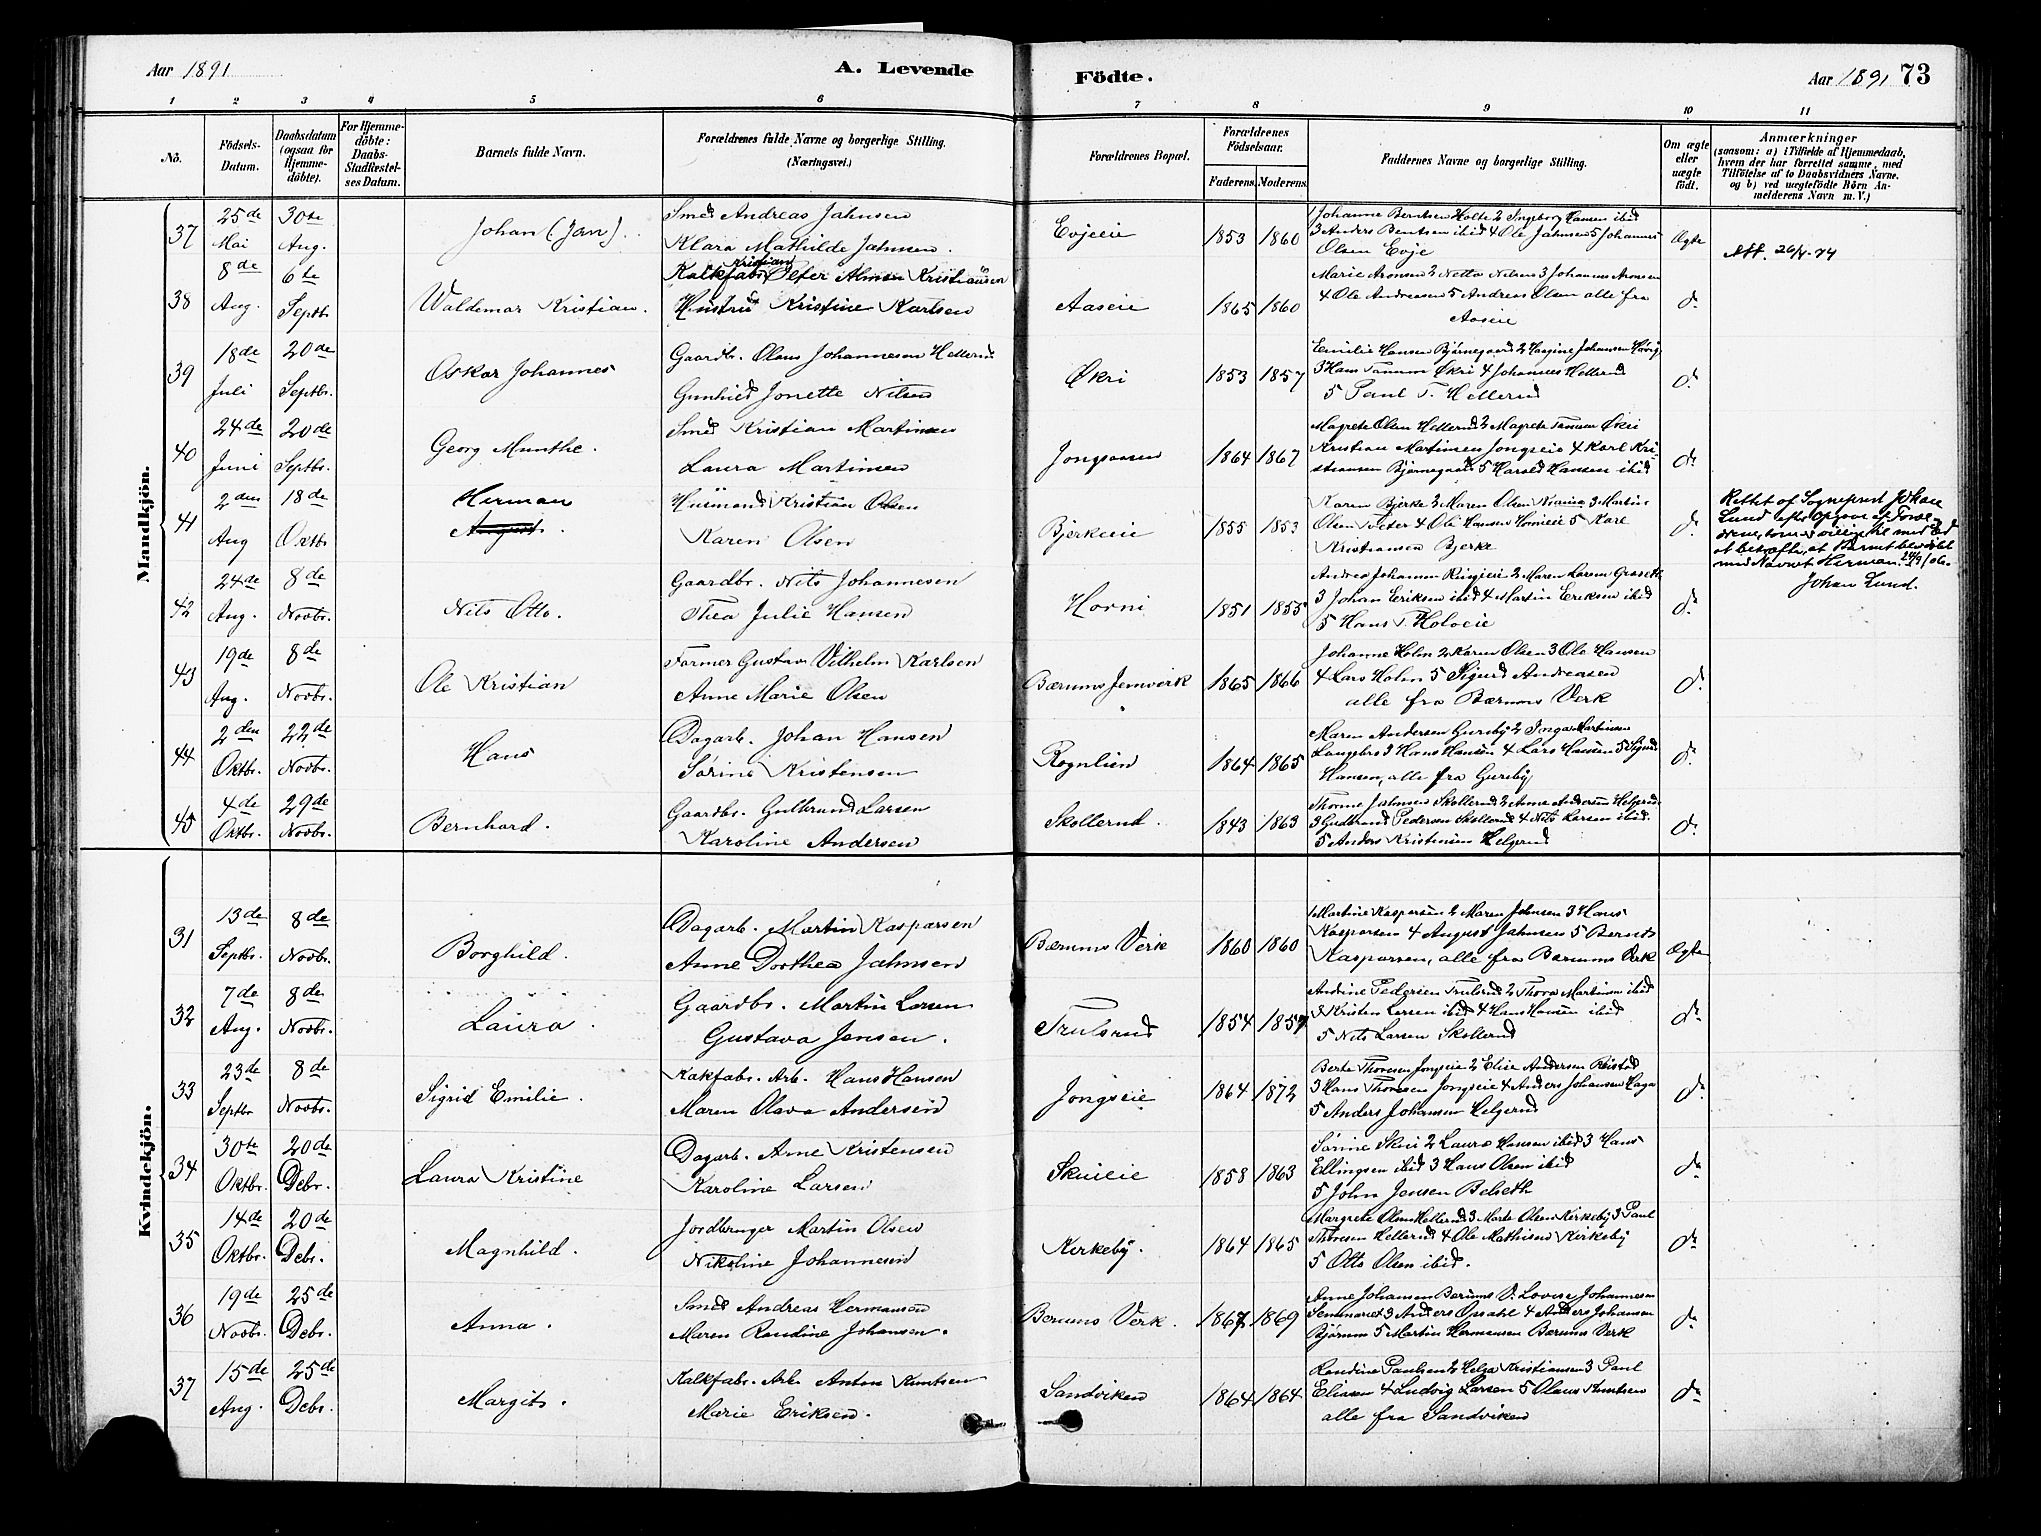 Aar 1891
A. Levende
Födte.
Aar 1891 73
1 2 3 4 5 6 7 8 9 10 11
No.
Födsels-
Datum.
Daabsdatum
(ogsaa for
Hjemme-
döbte).
For Hjemme-
döbte:
Daabs-
Stadfæstel-
ses Datum.
Barnets fulde Navn.
Forældrenes fulde Navne og borgerlige Stilling.
(Næringsvei.)
Forældrenes Bopæl.
Forældrenes
Födselsaar.
Faderens. Moderens.
Faddernes Navne og borgerlige Stilling.
Om ægte
eller
uægte
födt.
Anmærkninger
(saasom: a) i Tilfælde af Hjemmedaab,
hvem der har forrettet samme, med
Tilföielse af to Daabsvidners Navne.
og b) ved uægtefödte Börn An-
melderens Navn m. V.)
Mandkjön.
37
25de Mai
30te Aug.
Johan (Jan).
Smed Andreas Jahnsen
Klara Mathilde Jahnsen.
Evjeeie
1853 1860
1 Johanne Berntsen Holte 2 Ingeborg Hansen ibid
3 Anders Berntsen ibid 4 Ole Jahnsen 5 Johannes
Olsen Evje
Ægte
Att. 26/4-74
38
8de Aug.
6te Septbr
Waldemar Kristian.
Kristian
Kalkfabr. Peter Almon Kristiansen
Hustru Kristine Karlsen
Aaseie
1865 1860
Marie Aronsen 2 Netta Nilsen 3 Johannes Aronsen
4 Ole Andreasen 5 Andreas Olsen alle fra
Aaseie
do
39
18de Juli
20de Septbr.
Oskar Johannes
Gaardbr. Olaus Johannesen Hellerud
Gunhild Jonette Nilsen
Økri
1853 1857
Emilie Hansen Bjørnegaard 2 Haagine Johansen Høvig
3 Hans Tanum Økri 4 Johannes Hellerud
5 Paul T. Hellerud
do
40
24de Juni
20de Septbr.
Georg Munthe.
Smed Kristian Martinsen
Laura Martinsen
Jongsaasen
1864 1867
Magrete Olsen Hellerud 2 Magrete Tanum Økri
Kristian Martinsen Jongseie 4 Karl Kri-
stiansen Bjørnegaard 5 Harald Hansen ibid
do
41
2den Aug
18de Oktbr
Herman
August.
Husmand Kristian Olsen
Karen Olsen
Bjerkeeie
1855 1853
Karen Bjerke 2 Maren Olsen 3 Martin
Olsen 4 Ole Hansen Hornieie 5 Karl
Kristiansen Bjerke
do
Rettet af Sogneprest Johan
Lund efter Opgave af Foræl-
drene, som er villige til med Ed
at bekræfte, at Barnet blev døbt
med Navnet Herman.
Johan Lund.
42
24de Aug.
8de Novbr.
Nils Otto.
Gaardbr. Nils Johannesen
Thea Julie Hansen
Horni
1851 1855
Andrea Johansen Ringieie 2 Maren Larsen
3 Johan Eriksen ibid 4 Martin Eriksen ibid
5 Hans T. Holoeie
do
43
19de Aug.
8de Novbr.
Ole Kristian
Former Gustav Vilhelm Karlsen
Anne Marie Olsen
Bærums Jernverk
1865 1866
Johanne Holm 2 Karen Olsen 3 Ole Hansen
4 Lars Holm 5 Sigurd Andreasen
alle fra Bærums Verk
do
44
2den Oktbr.
22de Novbr.
Hans
Dagarb. Johan Hansen
Sørine Kristensen
Rognlien
1864 1865
Maren Andersen Gureby 2 Inga Martinsen
3 Hans Hansen 4 Lars Hansen 5 Sigurd
Hansen, alle fra Gureby
do
45
4de Oktbr.
29de Novbr.
Bernhard.
Gaardbr. Gulbrand Larsen
Karoline Andersen
Skollerud.
1843 1863
Thorine Jahnsen Skollerud 2 Anne Andersen Helgerud
3 Gudbrand Pedersen Skollerud 4 Nils Larsen ibid.
5 Anders Kristensen Helgerud
do
Kvindekjön.
31
13de Septbr.
8de Novbr.
Borghild.
Dagarb. Martin Kaspersen
Anne Dorthea Jahnsen
Bærums Verk
1860 1860
1 Martine Kaspersen 2 Maren Johnsen 3 Hans
Kaspersen 4 August Jahnsen 5 Bernts
Kaspersen, alle fra Bærums Verk
Ægte
32
7de Aug.
8de Novbr.
Laura.
Gaardbr. Martin Larsen
Gustava Jensen.
Trulsrud
1854 1857
Andine Pedersen Trulsrud 2 Thora Martinsen ibid
3 Kristen Larsen ibid 4 Hans Hansen ibid
5 Nils Larsen Skollerud
do
33
23de Septbr
8de Novbr.
Sigrid Emilie.
Kalkfabr. Arb. Hans Hansen
Maren Olava Andersen
Jongseie
1864 1872
Berte Thoresen Jongseie 2 Elise Andersen Reistad
3 Hans Thoresen Jongseie 4 Anders Johansen Haga
5 Anders Johansen Helgerud
do
34
30te Oktbr.
20de Debr.
Laura Kristine
Dagarb. Arne Kristensen
Karoline Larsen
Skuieie
1858 1863
Sørine Skui 2 Laura Hansen ibid 3 Hans
Ellingsen ibid 3 Hans Olsen ibid
5 John Jensen Belseth
do
35
14de Oktbr.
20de Debr.
Magnhild.
Jordbruger Martin Olsen
Nikoline Johannesen
Kirkeby.
1864 1865
Margrete Olsen Hellerud 3 Marte Olsen Kirkeby 3 Paul
Thoresen Hellerud 4 Ole Mathisen Kirkeby
5 Otto Olsen ibid.
do
36
19de Novbr.
25de Debr.
Anna.
Smed Andreas Hermansen
Maren Randine Johansen.
Bærums Verk.
1867 1869
Anne Johansen Bærums V. Lovise Johannesen
Seminariet 3 Anders Opsahl 4 Anders Johansen
Bjørum 5 Martin Hermansen Bærums Verk
do
37
15de Aug.
25de Debr.
Margit.
Kalkfabr. Arb. Anton Knutsen
Marie Eriksen.
Sandviken
1864 1864
Randine Paulsen 2 Helga Kristiansen 3 Paul
Eliasen 4 Ludvig Larsen 5 Olaus Knutsen
alle fra Sandviken
do